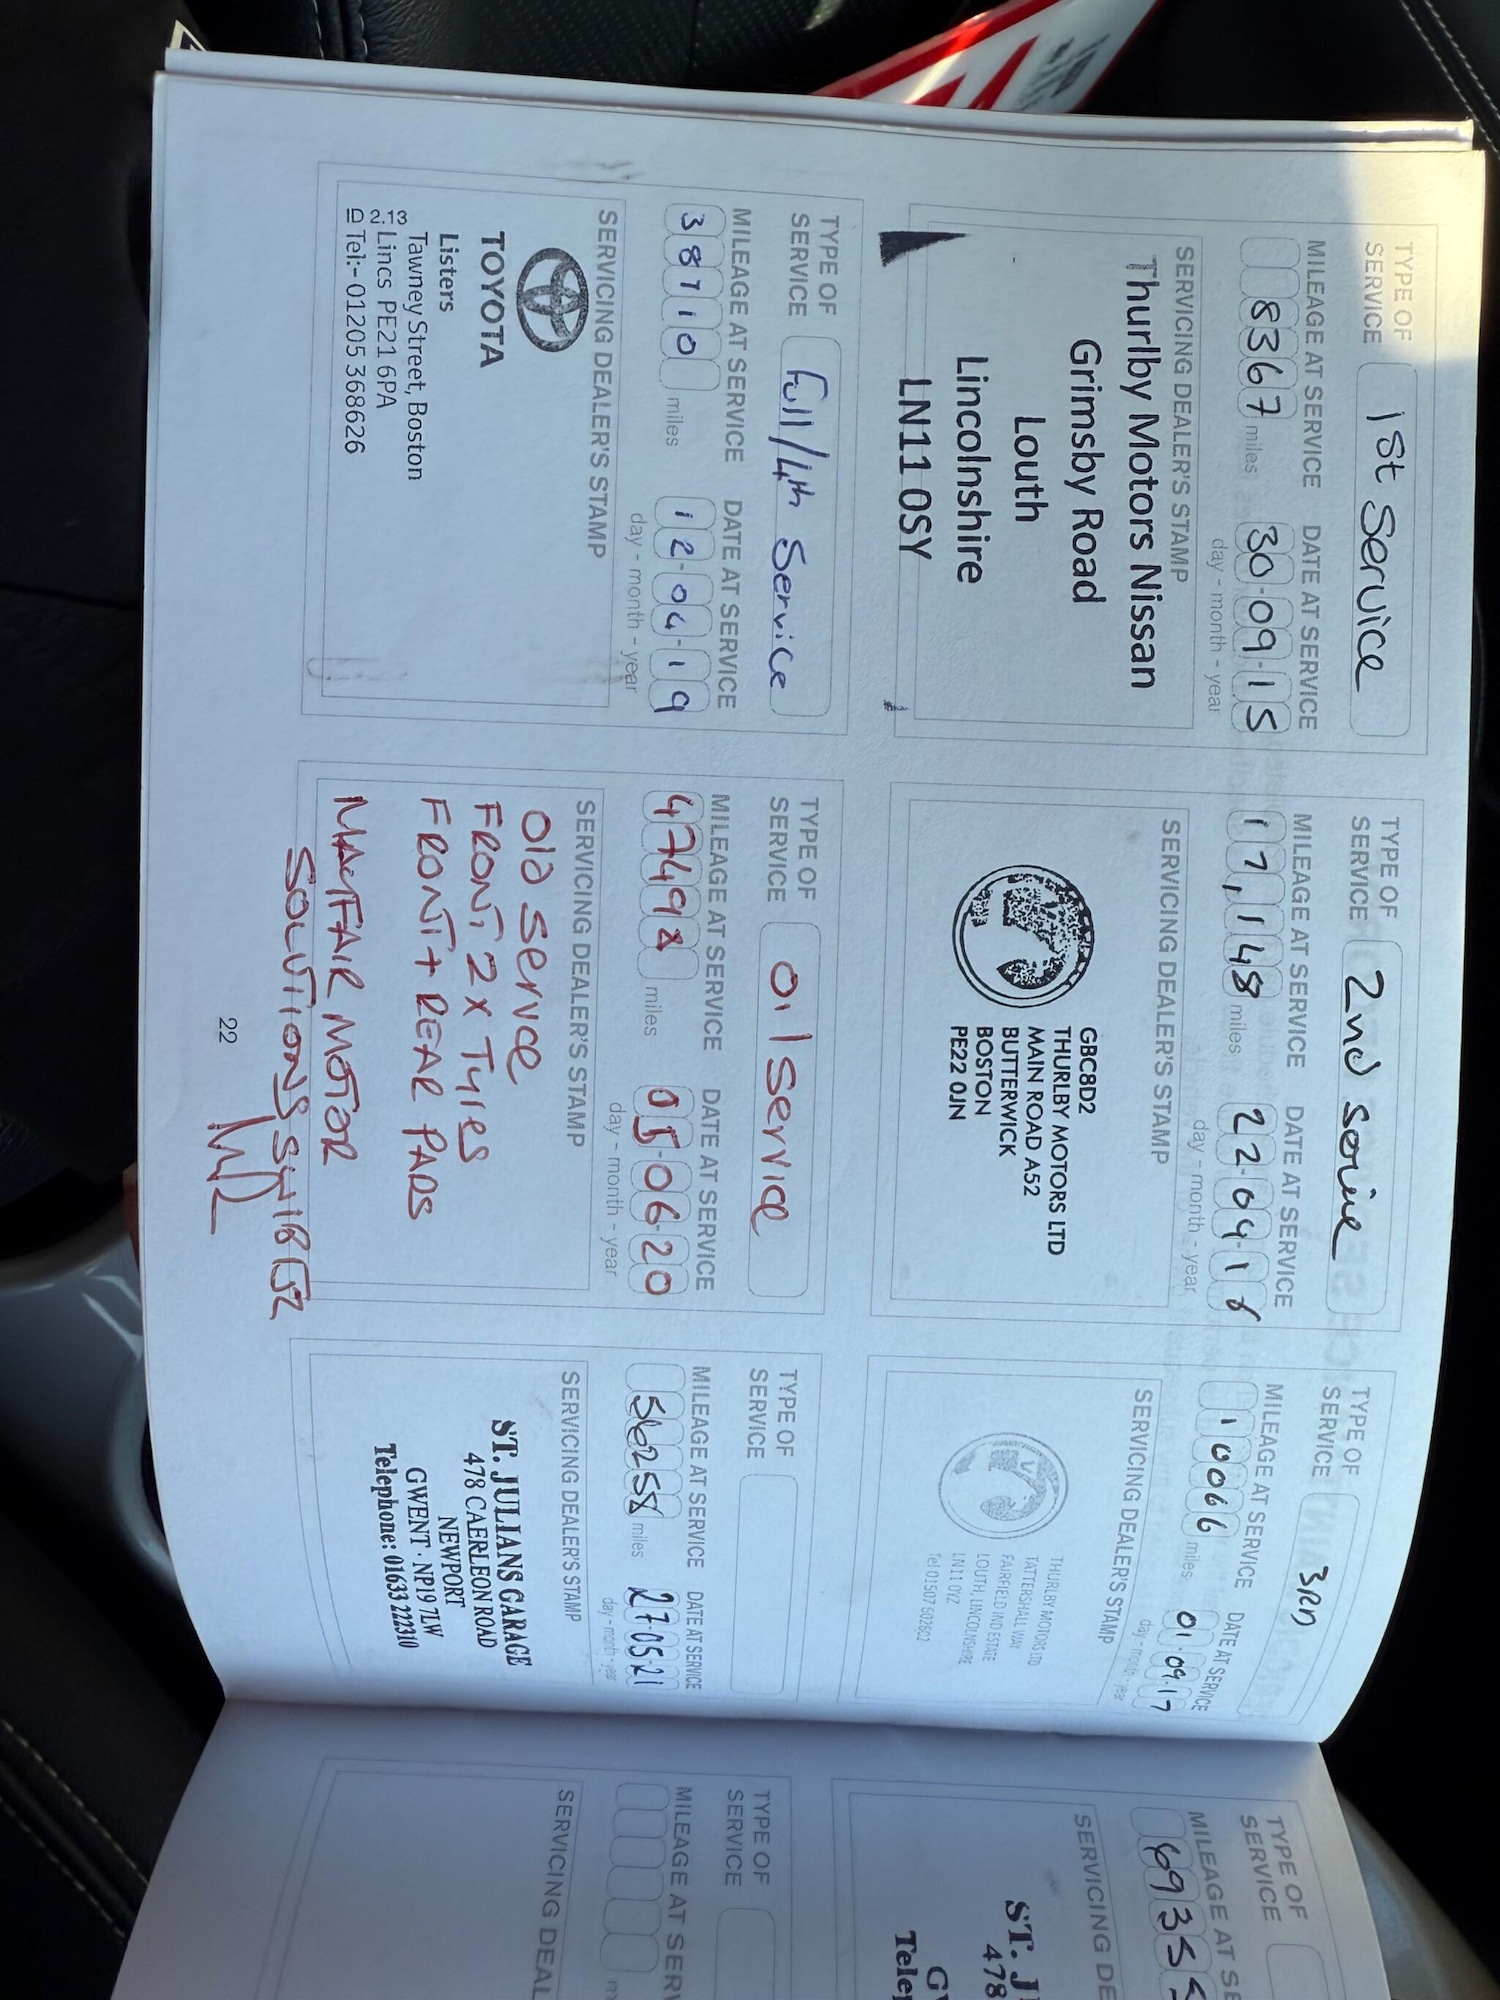 TYPE OF
SERVICE
1st Service
MILEAGE AT SERVICE
DATE AT SERVICE
8367 miles
30-09-15
day - month - year
SERVICING DEALER'S STAMP
Thurlby Motors Nissan
Grimsby Road
Louth
Lincolnshire
LN11 0SY
TYPE OF
SERVICE
2nd Service
MILEAGE AT SERVICE
DATE AT SERVICE
17,148 miles
22-04-16
day - month - year
SERVICING DEALER'S STAMP
GBC8D2
THURLBY MOTORS LTD
MAIN ROAD A52
BUTTERWICK
BOSTON
PE22 0JN
TYPE OF
SERVICE
3RD
MILEAGE AT SERVICE
DATE AT SERVICE
10066 miles
01-09-17
day - month - year
SERVICING DEALER'S STAMP
THURLBY MOTORS LTD
TATTERSHALL WAY
FAIRFIELD IND ESTATE
LOUTH, LINCOLNSHIRE
LN11 0YZ
Tel 01507 602602
TYPE OF
SERVICE
Full/4th Service
MILEAGE AT SERVICE
DATE AT SERVICE
38710 miles
12-04-19
day - month - year
SERVICING DEALER'S STAMP
TOYOTA
Listers
Tawney Street, Boston
Lincs PE21 6PA
Tel:- 01205 368626
TYPE OF
SERVICE
Oil Service
MILEAGE AT SERVICE
DATE AT SERVICE
47498 miles
05-06-20
day - month - year
SERVICING DEALER'S STAMP
Oil Service
FRONT 2x Tyres
FRONT + REAR PADS
MAYFAIR MOTOR
SOLUTIONS
TYPE OF
SERVICE
MILEAGE AT SERVICE
DATE AT SERVICE
56258 miles
27-05-21
day - month - year
SERVICING DEALER'S STAMP
ST. JULIANS GARAGE
478 CAERLEON ROAD
NEWPORT
GWENT · NP19 7LW
Telephone: 01633 222310
22
TYPE OF
SERVICE
MILEAGE AT SE
6935
SERVICING DE
ST. J
478
G
Telep
TYPE OF
SERVICE
MILEAGE AT SERV
SERVICING DEAL